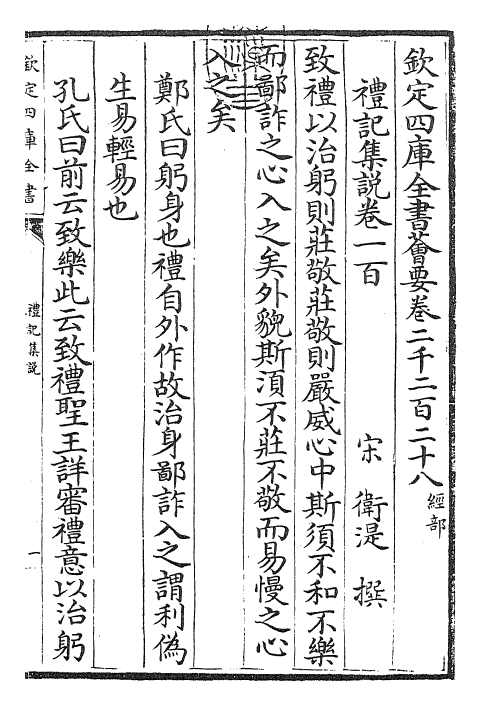 欽定四庫全書薈要卷二千二百二十八 經部
禮記集說卷一百
宋 衛湜 撰
致禮以治躬則莊敬莊敬則嚴威心中斯須不和不樂
而鄙詐之心入之矣外貌斯須不莊不敬而易慢之心
入之矣
鄭氏曰躬身也禮自外作故治身鄙詐入之謂利偽
生易輕易也
孔氏曰前云致樂此云致禮聖王詳審禮意以治躬
欽定四庫全書
禮記集說
一